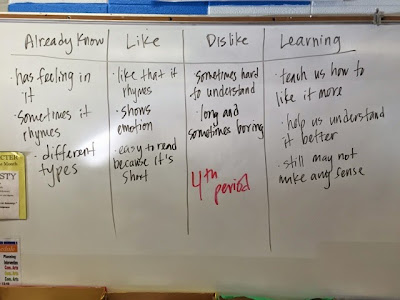 Already Know
· has feeling in
it
· sometimes it
rhymes
· different
types
Like
· like that it
rhymes
· shows
emotion
· easy to read
because it's
short
Dislike
· sometimes hard
to understand
· long and
sometimes boring
4th
period
Learning
· teach us how to
like it more
· help us understand
it better
· still may not
make any sense
Planning
Intervention